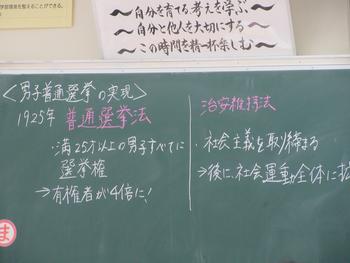 学習環境を整えることができる。
〜自分を育てる考えを学ぶ〜
〜自分と他人を大切にする〜
〜この時間を精一杯楽しむ〜
<男子普通選挙の実現>
1925年 普通選挙法
・満25才以上の男子すべてに
選挙権
→有権者が4倍に!
治安維持法
・社会主義を取り締まる
→後に、社会運動全体に拡
ま